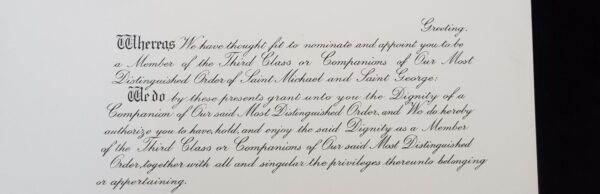 Greeting.
Whereas We have thought fit to nominate and appoint you to be
a Member of the Third Class or Companions of Our Most
Distinguished Order of Saint Michael and Saint George:
We do by these presents grant unto you the Dignity of a
Companion of Our said Most Distinguished Order, and We do hereby
authorize you to have, hold, and enjoy the said Dignity as a Member
of the Third Class or Companions of Our said Most Distinguished
Order, together with all and singular the privileges thereunto belonging
or appertaining.